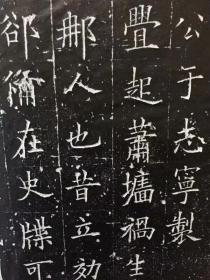 公于志寧製
疊起蕭墻禍生
邢人也昔立効
郤彌在史牒可